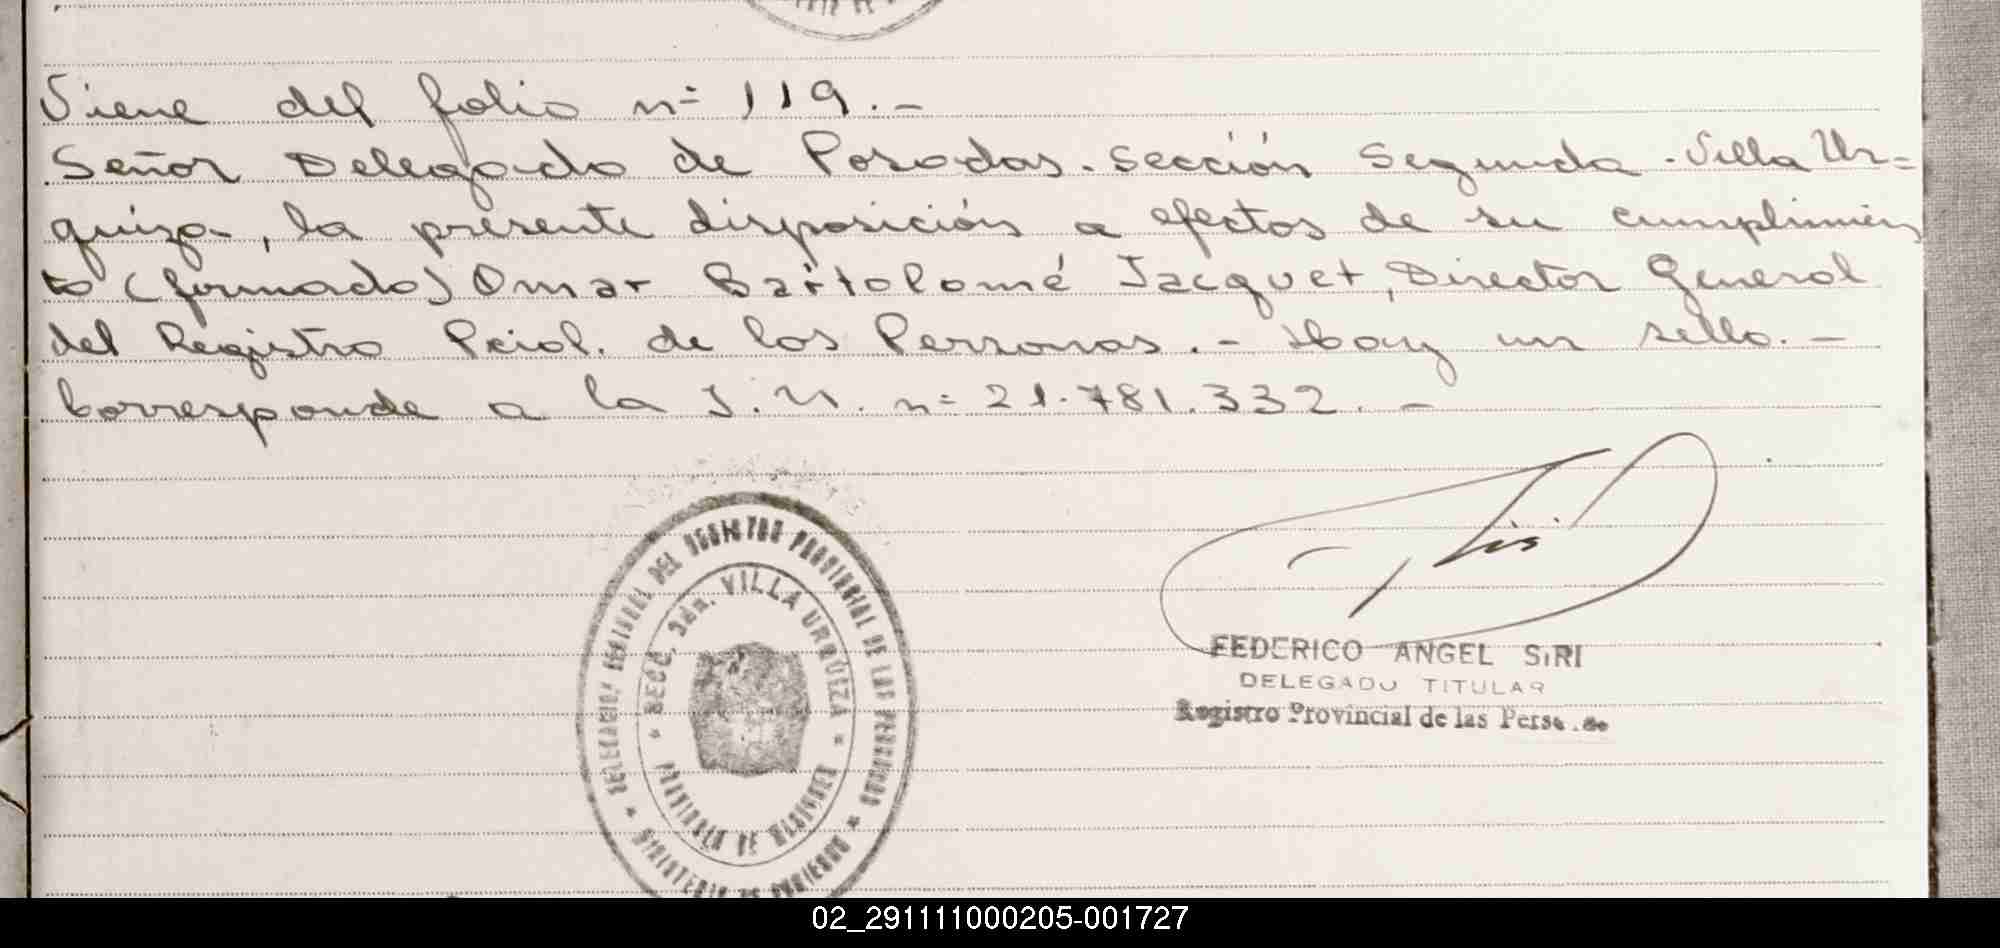 Viene del folio nº 119.-
Señor Delegado de Posadas. Sección Segunda - Villa Ur=
quiza-, la presente disposición a efectos de su cumplimien
to (firmado) Omar Bartolomé Jacquet, Director General
del Registro Pciol. de las Personas.- Hay un sello.-
Corresponde a la I.N. n= 21.781.332.-
DELEGACION REGIONAL DEL REGISTRO PROVINCIAL DE LAS PERSONAS * MINISTERIO DE GOBIERNO *
SECC. 2da. VILLA URQUIZA * PROVINCIA DE MISIONES *
FEDERICO ANGEL SIRI
DELEGADO TITULAR
Registro Provincial de las
02_291111000205-001727